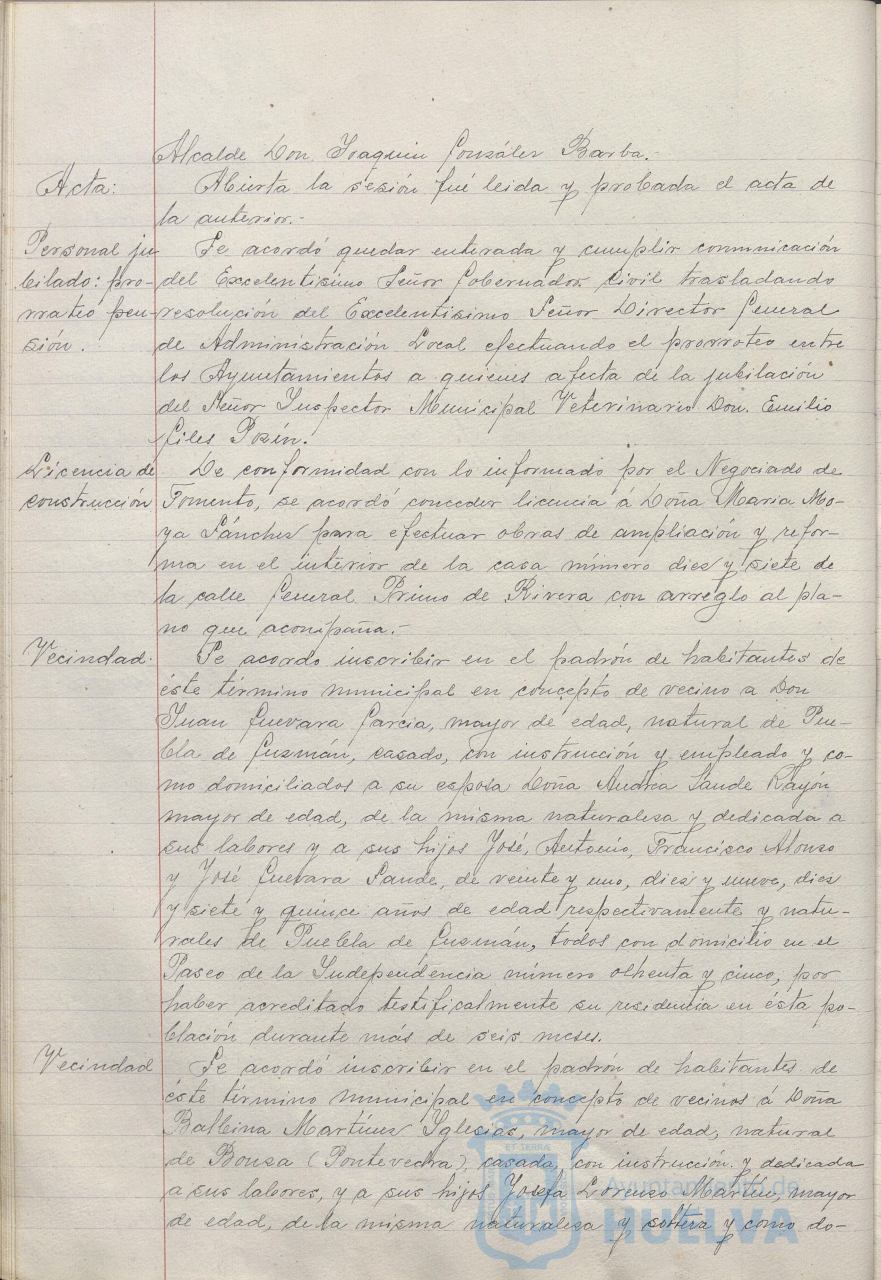 Alcalde Don Joaquin González Barba.-
Acta: Abierta la sesión fué leida y probada el acta de
la anterior.-
Personal ju Se acordó quedar enterada y cumplir comunicación
bilado: pro- del Excelentisimo Señor Gobernador Civil trasladando
rrateo pen- resolución del Excelentisimo Señor Director General
sión. de Administración Local efectuando el prorroteo entre
los Ayuntamientos a quienes afecta de la jubilación
del Señor Inspector Municipal Veterinario Don. Emilio
Giles
Licencia de De conformidad con lo informado por el Negociado de
construcción Fomento, se acordó conceder licencia á Doña Maria Mo-
ya Sánchez para efectuar obras de ampliación y refor-
ma en el interior de la casa número diez y siete de
la calle General Primo de Rivera con arreglo al pla-
no que acompaña.-
Vecindad. Se acordo inscribir en el padrón de habitantes de
éste término municipal en concepto de vecino a Don
Juan Guevara Garcia, mayor de edad, natural de Pue-
bla de Guzmán, casado, con instrucción y empleado y co-
mo domiciliados a su esposa Doña Andrea Sande Rayón
mayor de edad, de la misma naturaleza y dedicada a
sus labores y a sus hijos José, Antonio, Francisco Alonso
y José Guevara Sande, de veinte y uno, diez y nueve, diez
y siete y quince años de edad respectivamente y natu-
rales de Puebla de Guzmán, todos con domicilio en el
Paseo de la Independéncia número ochenta y cinco, por
haber acreditado testificalmente su residencia en ésta po-
blación durante más de seis meses.
Vecindad Se acordó inscribir en el padrón de habitantes de
éste término municipal en concepto de vecinos á Doña
Balbina Martinez Yglesias, mayor de edad, natural
de Bouza (Pontevedra), casada, con instrucción y dedicada
a sus labores, y a sus hijos Josefa Lorenzo Martín, mayor
de edad, de la misma naturaleza y soltera y como do-
Ayuntamiento de
HUELVA